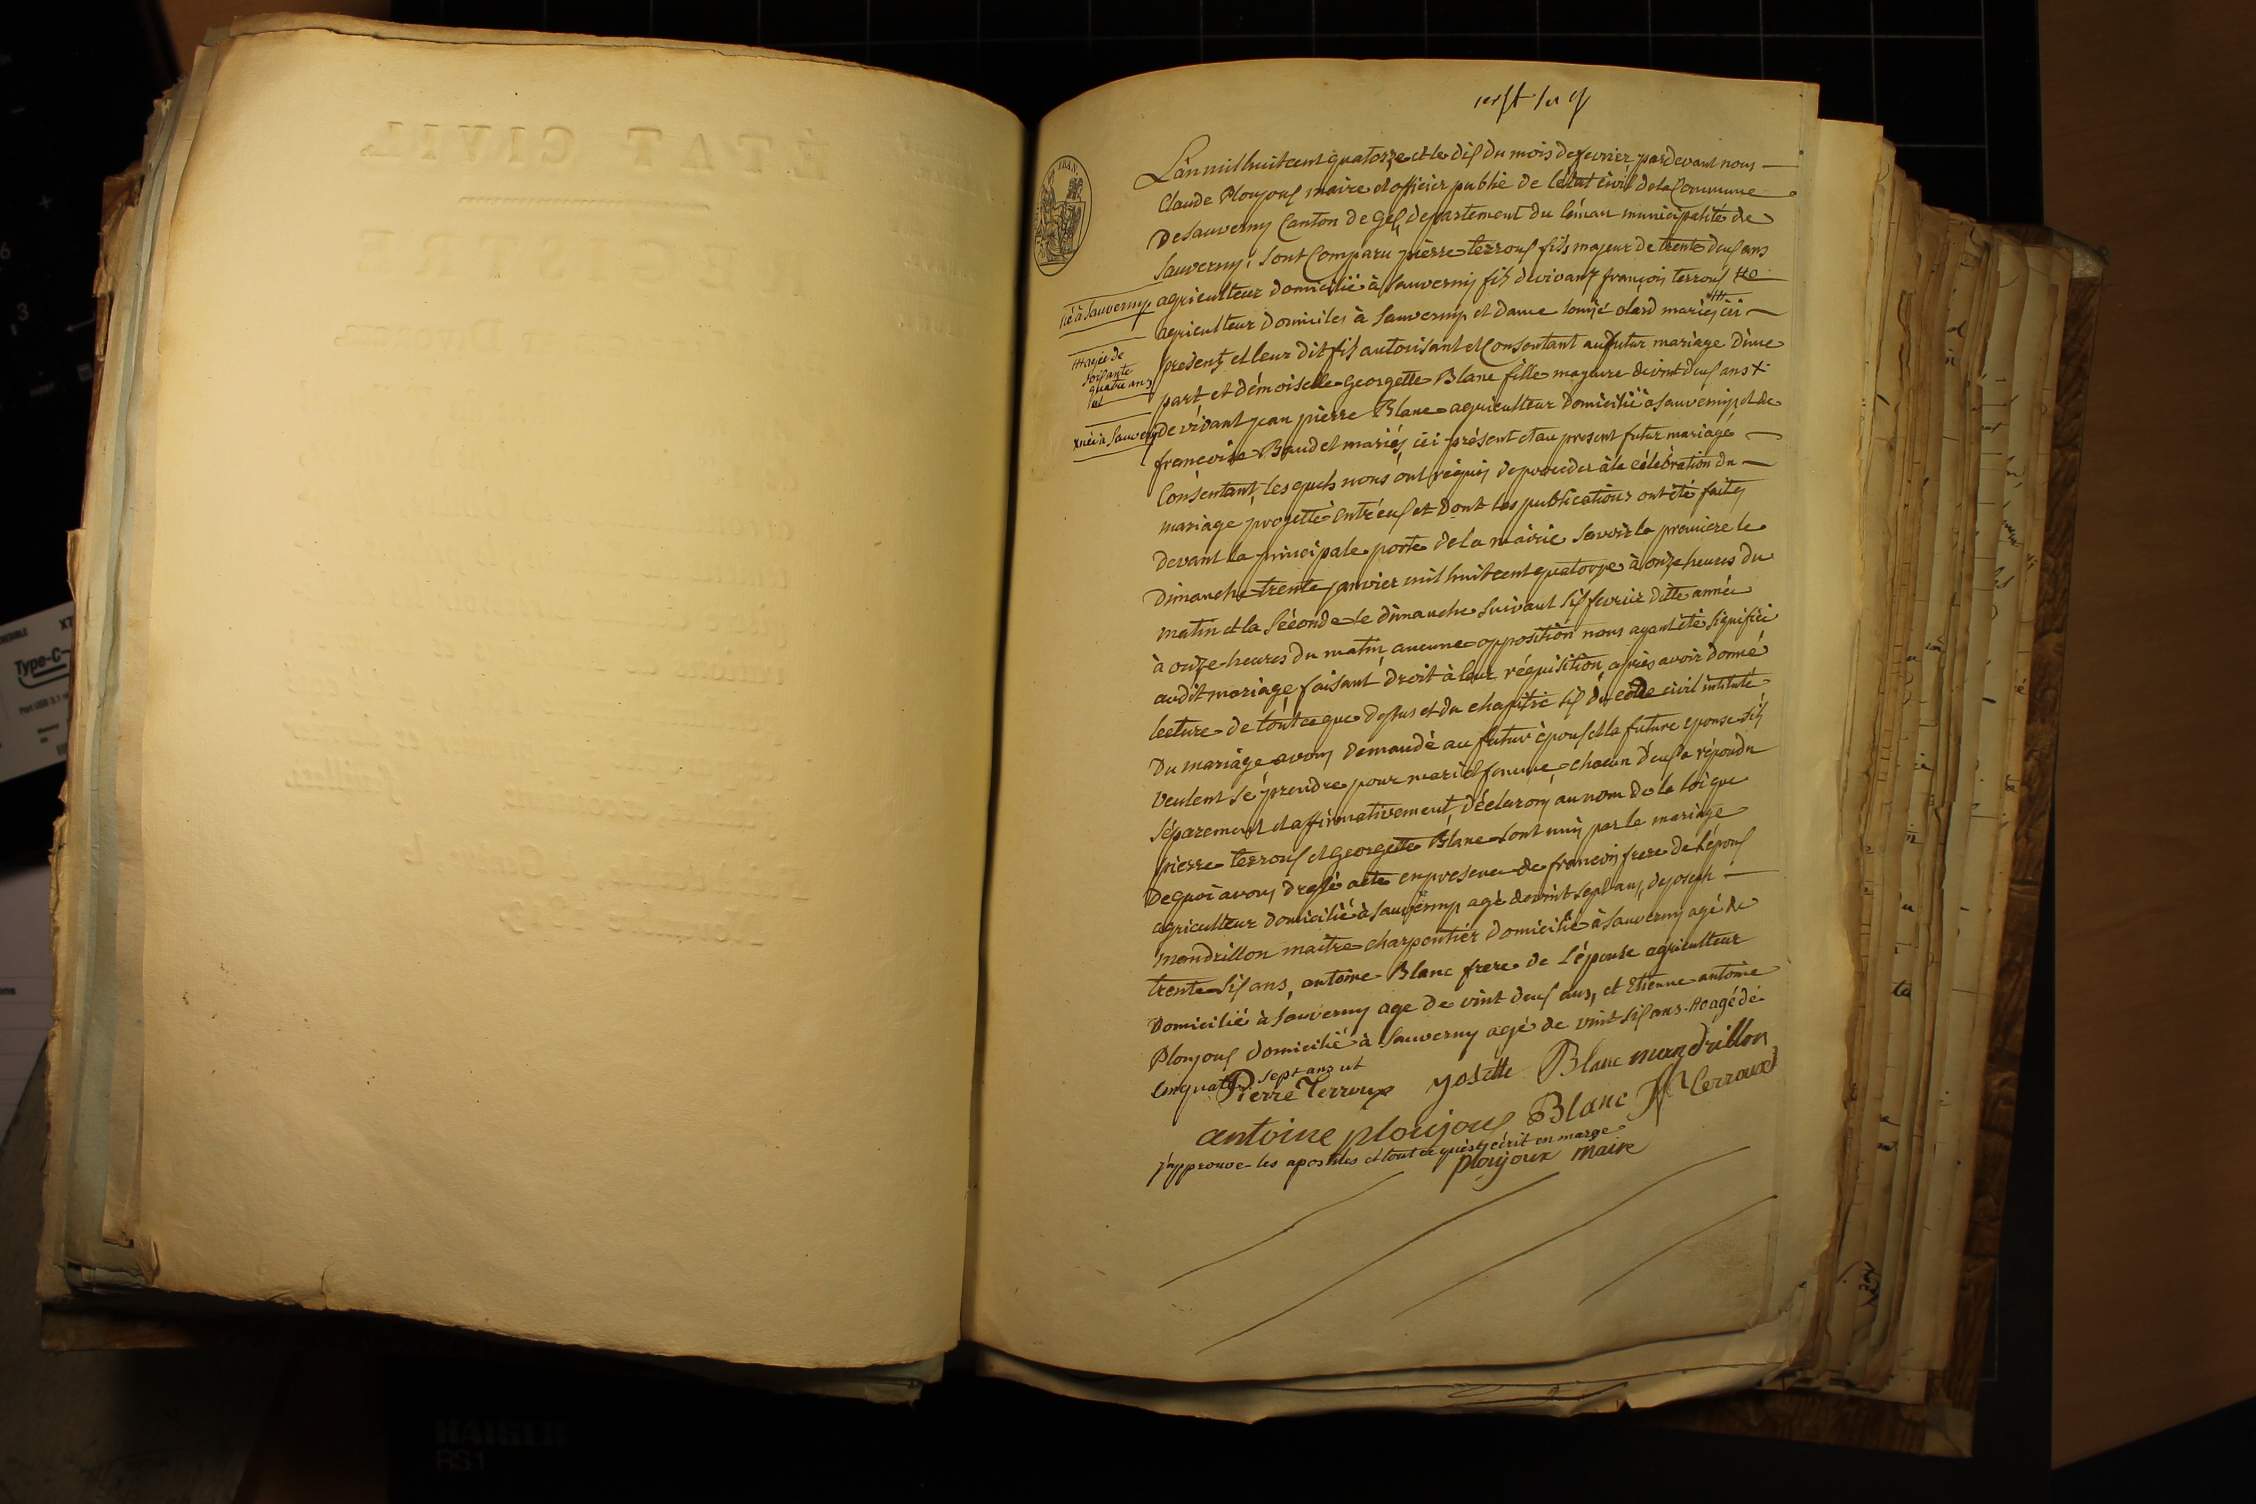 ÉTAT CIVIL.
L'an mil huit cent quatorze et le dix du mois de fevrier pardevant nous
Claude Ploujoux maire et officier public de létat civil de la Commune
De Sauverny Canton de Gex, departement du léman municipalité de
Sauverny, sont Comparu pierre terroux fils majeur de trente deux ans
né à Sauverny
agriculteur domicilié à Sauverny fils de vivant françois terroux
agriculteur domiciles à Sauverny et dame olard mariés ici
agée de
soisante
quatre ans
présent et leur dit fils autorisant et Consentant au futur mariage d'une
part et démoiselle georgette Blanc fille majeure de vint deux ans X
X née à Sauverny
de vivant jean pierre Blanc agriculteur domicilié à Sauverny et de
francoise Baudet mariés, ici présent et au present futur mariage
Consentant, les quels nous ont requis de proceder à la célébration du
mariage progetté entr'eux et dont les publications ont été faites
devant la principale porte de la mairie savoir la premiere le
dimanche trente janvier mil huit cent quatorze à onze heures du
matin et la séconde le dimanche suivant six fevrier ditte année
à onze heures du matin, aucune opposition nous ayant été signifiée
audit mariage, faisant droit à leur réquisition, après avoir donné
lecture de tout ce que dessus et du chapitre six du code civil intitulé
Du mariage avons demandé au futur époux et la future épouse s'ils
veulent se prendre pour mari et femme, chacun d'eux a répondu
séparement et affirmativement, déclarons au nom de la loi que
pierre terroux et georgette Blanc sont unis par le mariage
De quoi avons dressé acte en presence de francois frere de l'époux
agriculteur domicilié à Sauverny agé de vint sept ans, de joseph
mandrillon maitre charpentier domicilié à Sauverny agé de
trente six ans, antoine Blanc frere de l'épouse agriculteur
domicilié à Sauverny age de vint deux ans, et Etienne antoine
Ploujoux domicilié à Sauverny agé de vint six ans. agé de
cinquante sept ans
Pierre Terroux yosette Blanc mandrillon
antoine ploujoux Blanc terroux
j'approuve les apostiles et tout ce qui est écrit en marge
ploujoux maire
Type-C